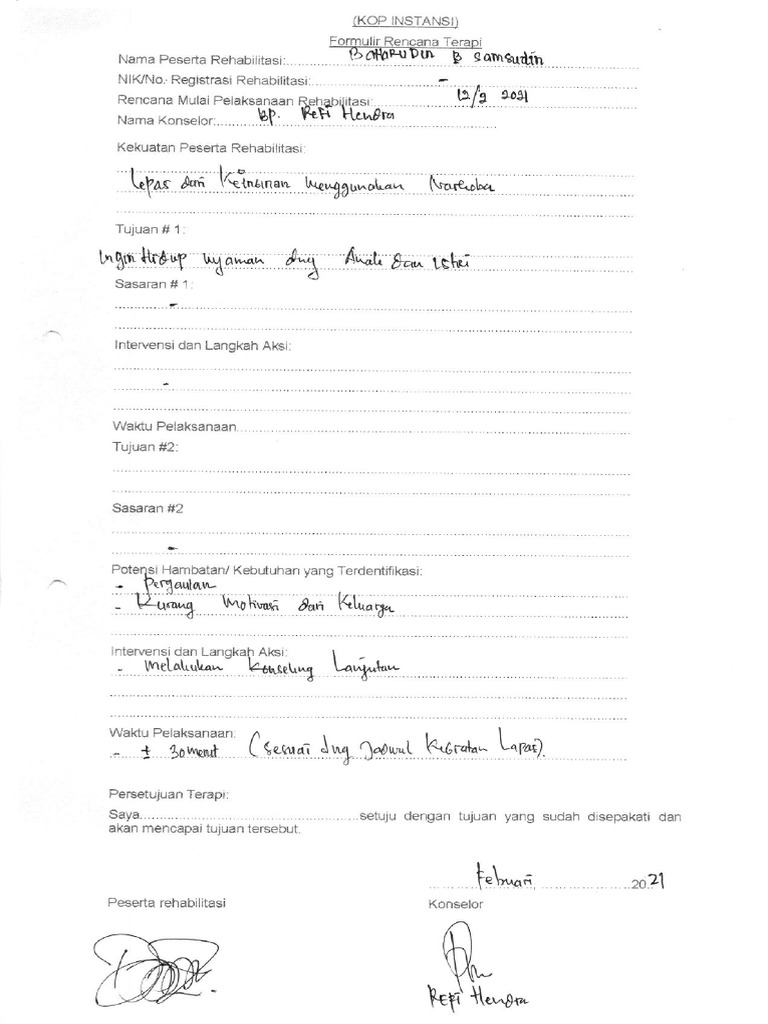 (KOP INSTANSI)
Formulir Rencana Terapi
Nama Peserta Rehabilitasi: Baharudin B Samsudin
NIK/No. Registrasi Rehabilitasi: -
Rencana Mulai Pelaksanaan Rehabilitasi: 12/2 2021
Nama Konselor: Bp. Refi Hendra
Kekuatan Peserta Rehabilitasi:
Lepas dari Keinginan menggunakan Narkoba
Tujuan # 1:
Ingin Hidup nyaman dng Anak dan Istri
Sasaran # 1:
-
Intervensi dan Langkah Aksi:
-
Waktu Pelaksanaan
Tujuan #2:
Sasaran #2
-
Potensi Hambatan/ Kebutuhan yang Terdentifikasi:
- Pergaulan
- Kurang Motivasi dari Keluarga
Intervensi dan Langkah Aksi:
- Melakukan Konseling Lanjutan
Waktu Pelaksanaan:
- ± 30 menit (Sesuai dng Jadwal Kegiatan Lapas).
Persetujuan Terapi:
Saya..........setuju dengan tujuan yang sudah disepakati dan
akan mencapai tujuan tersebut.
Febuari, 2021
Peserta rehabilitasi Konselor
Refi Hendra